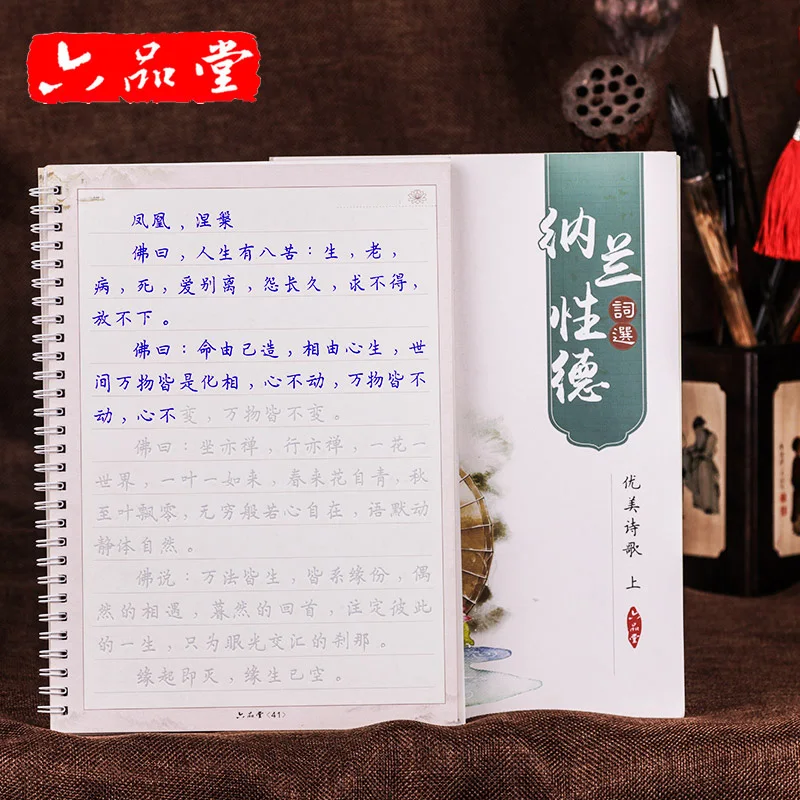 六品堂
凤凰，涅槃
佛曰，人生有八苦：生，老，
病，死，爱别离，怨长久，求不得，
放不下。
佛曰：命由己造，相由心生，世
间万物皆是化相，心不动，万物皆不
动，心不变，万物皆不变。
佛曰：坐亦禅，行亦禅，一花一
世界，一叶一如来，春来花自青，秋
至叶飘零，无穷般若心自在，语默动
静体自然。
佛说：万法皆生，皆系缘份，偶
然的相遇，蓦然的回首，注定彼此
的一生，只为眼光交汇的刹那。
缘起即灭，缘生已空。
六品堂〈41〉
纳兰性德
詞選
优美诗歌 上
六品堂